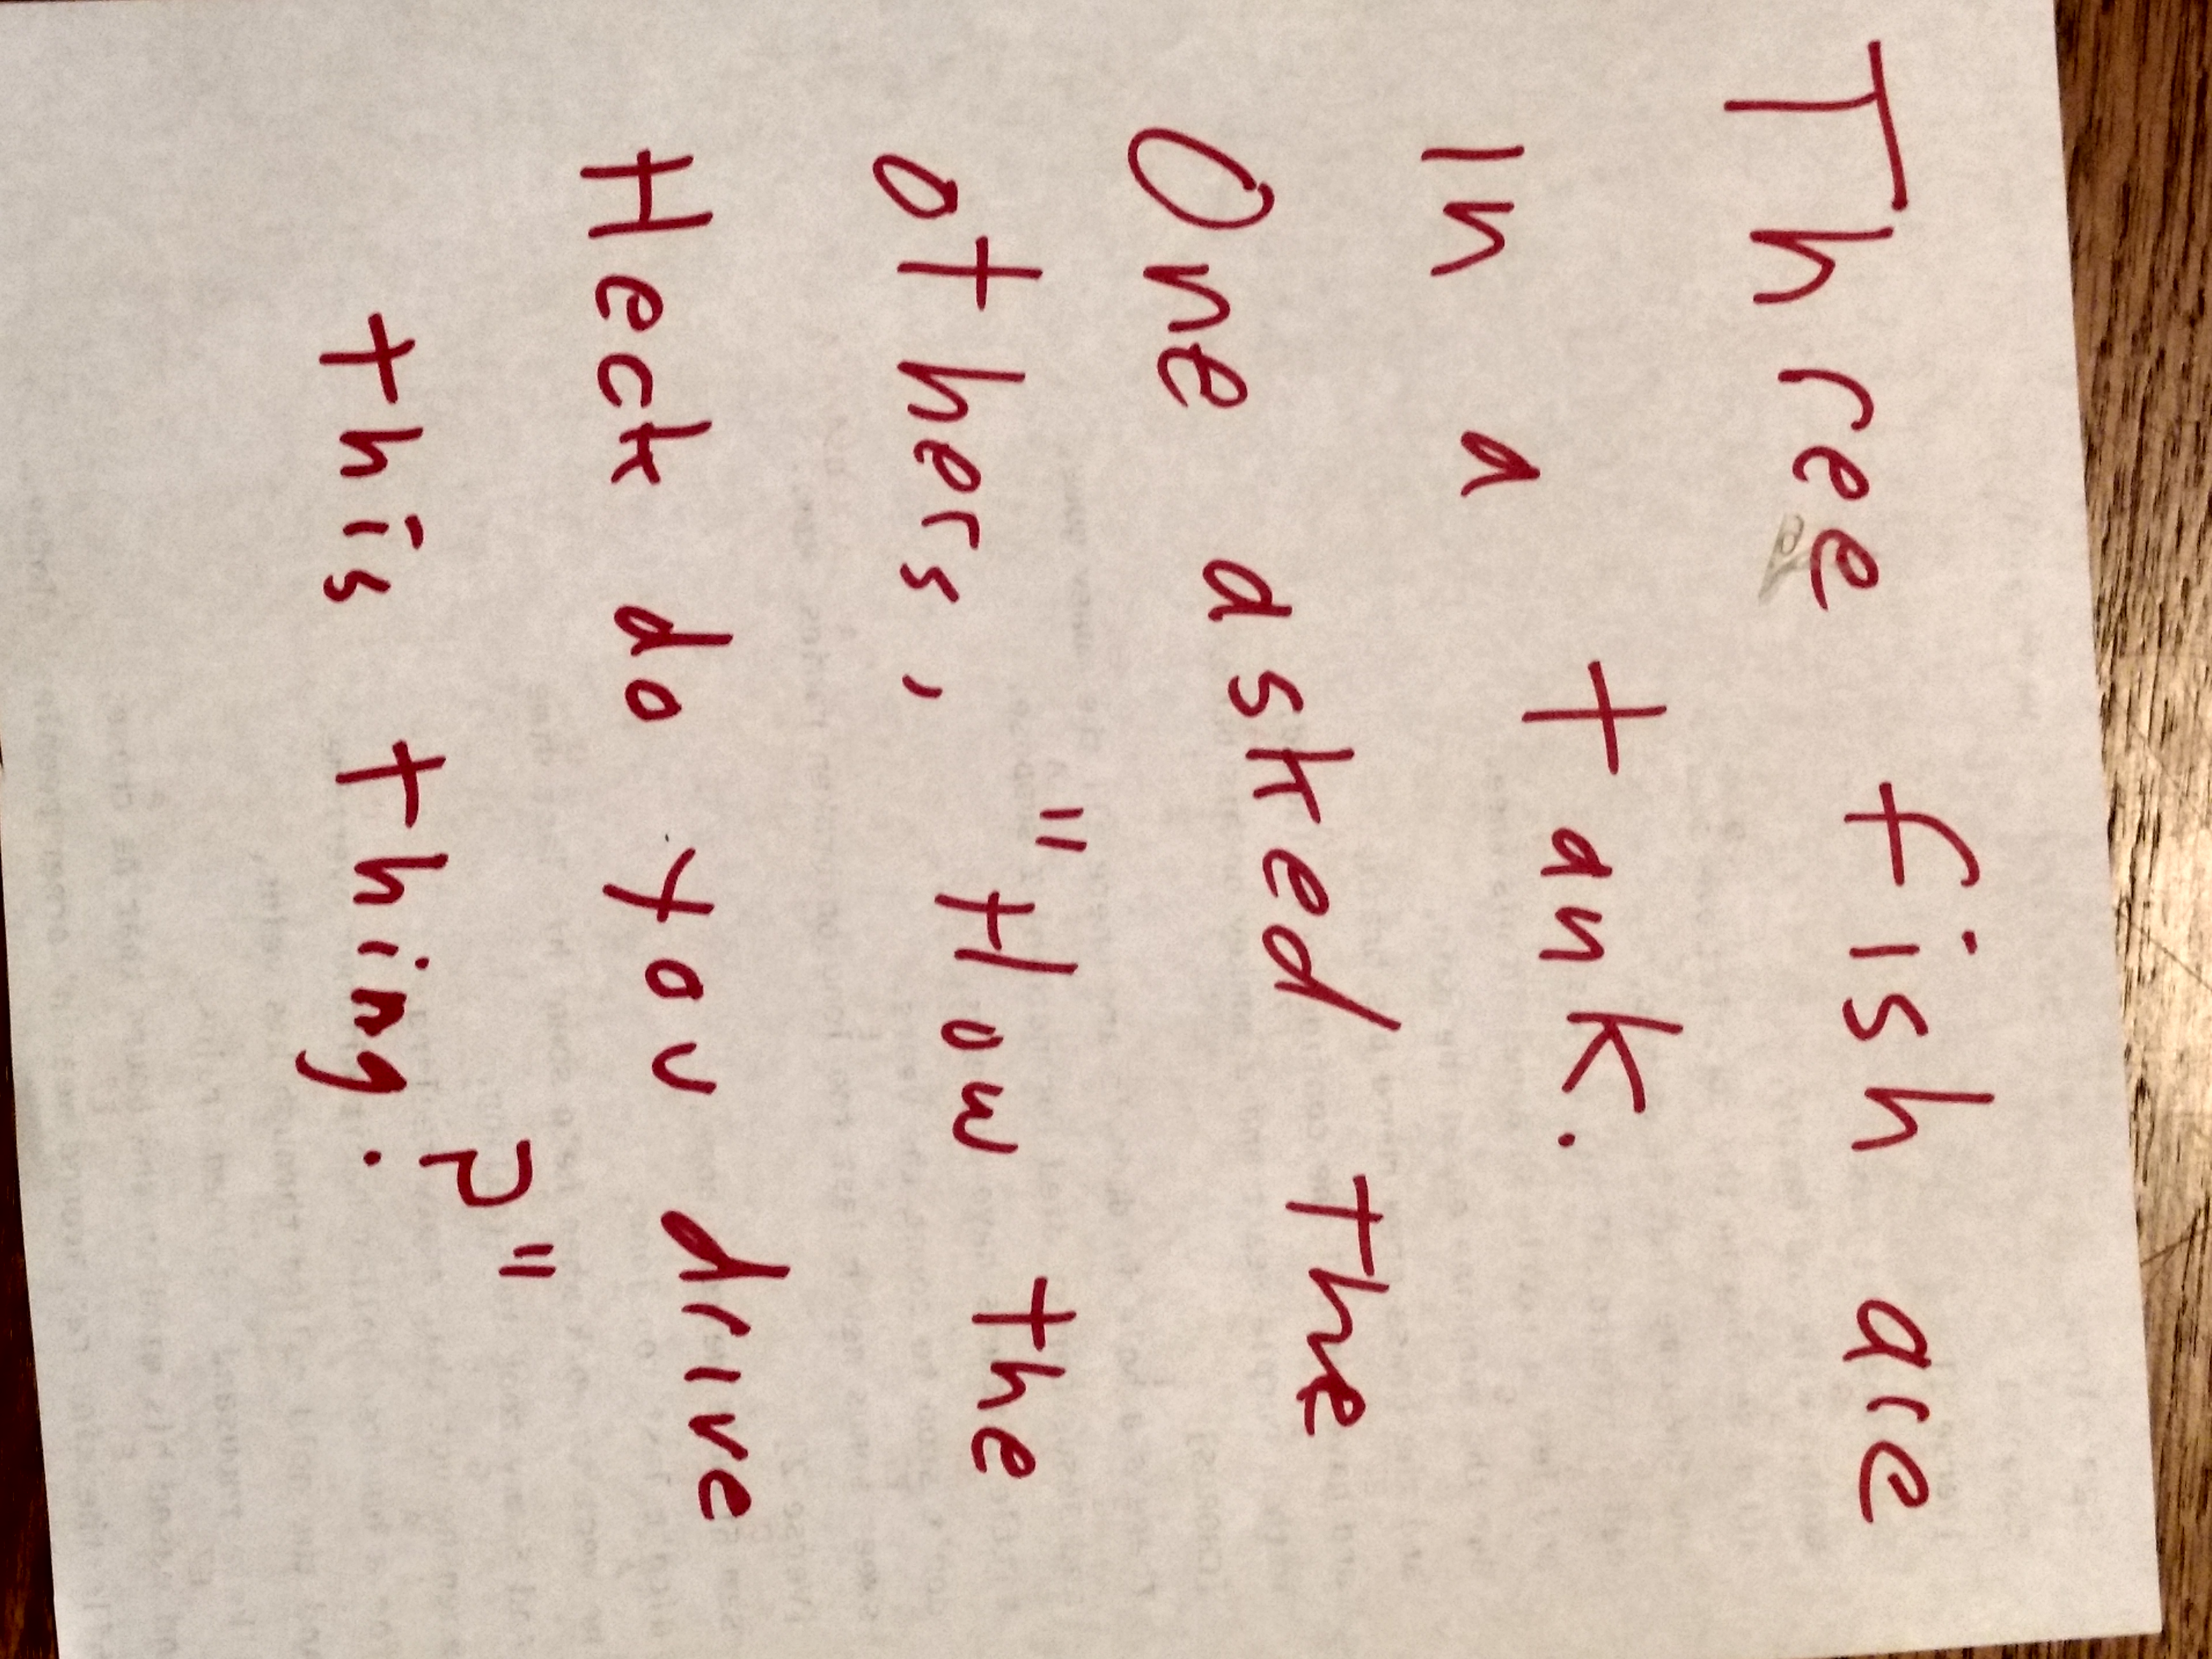 Three fish are
In a tank.
One asked the
others, "How the
Heck do you drive
this thing?"